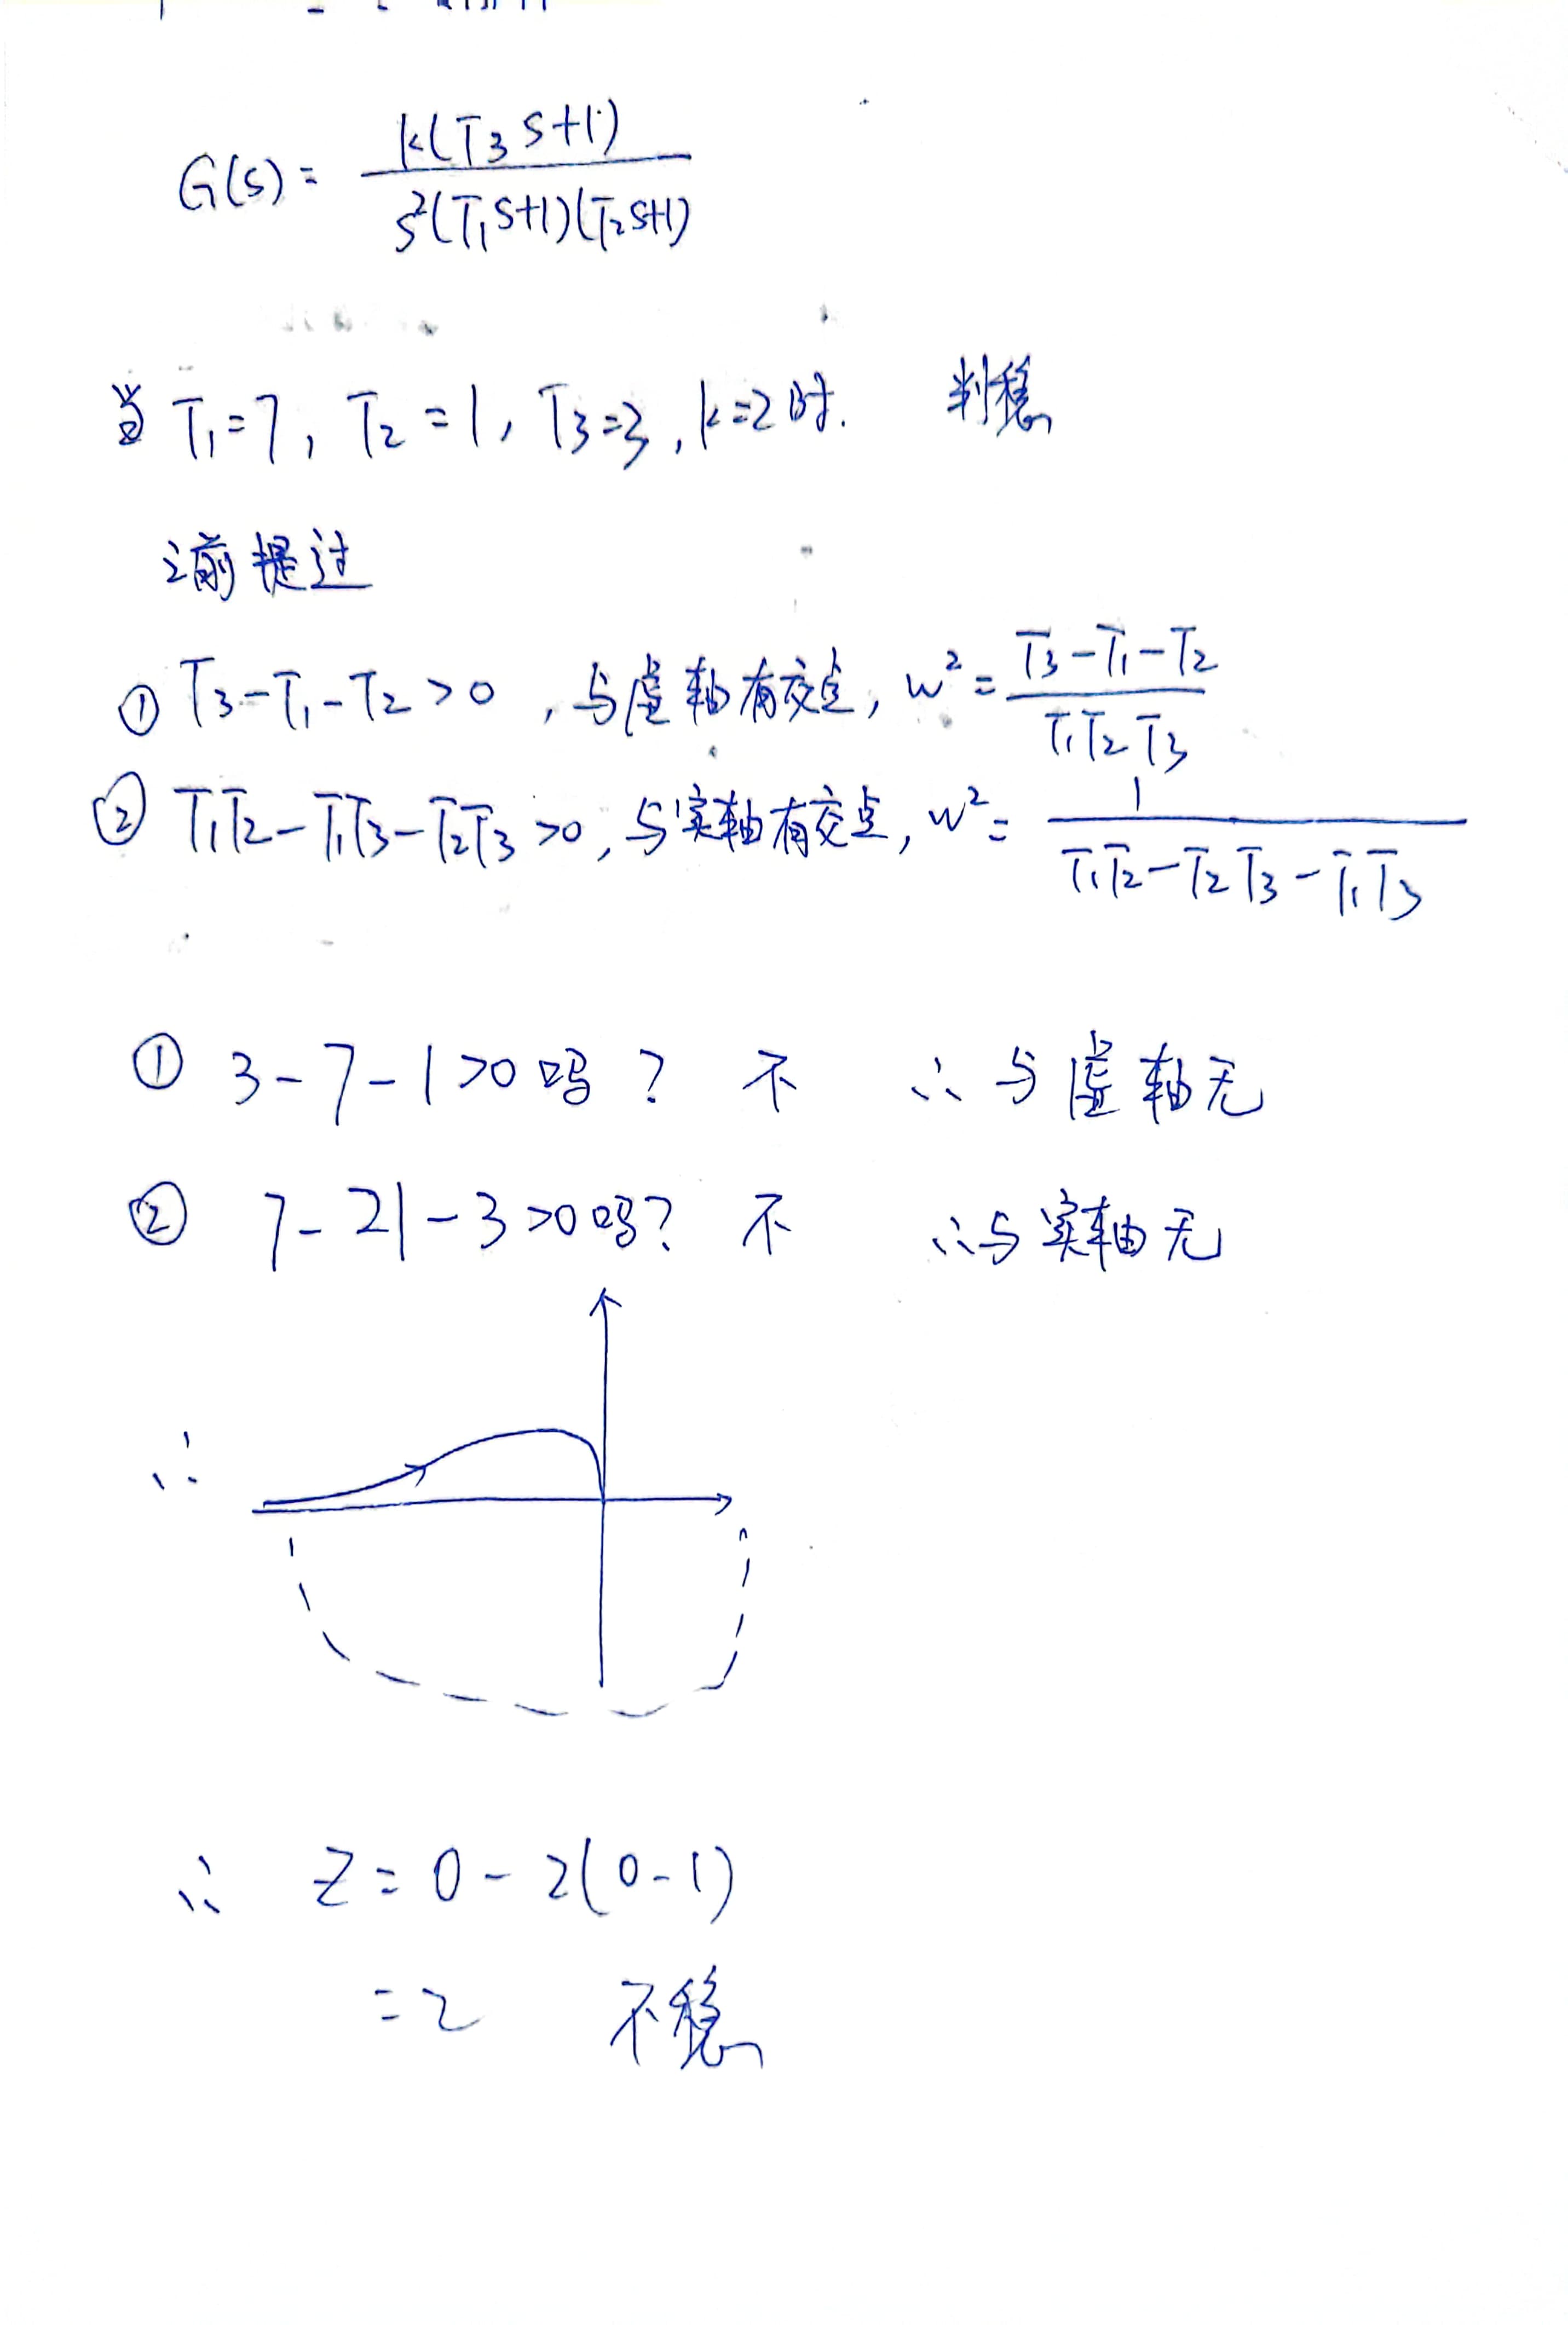 G(s) = k(T₃s+1) / s²(T₁s+1)(T₂s+1)
当 T₁=7, T₂=1, T₃=3, k=2时. 判稳
之前提过
① T₃-T₁-T₂>0, 与虚轴有交点, w² = (T₃-T₁-T₂) / T₁T₂T₃
② T₁T₂-T₁T₃-T₂T₃>0, 与实轴有交点, w² = 1 / (T₁T₂-T₂T₃-T₁T₃)
① 3-7-1>0吗? 不 ∴与虚轴无
② 7-21-3>0吗? 不 ∴与实轴无
∴
∴ Z=0-2(0-1)
=2 不稳